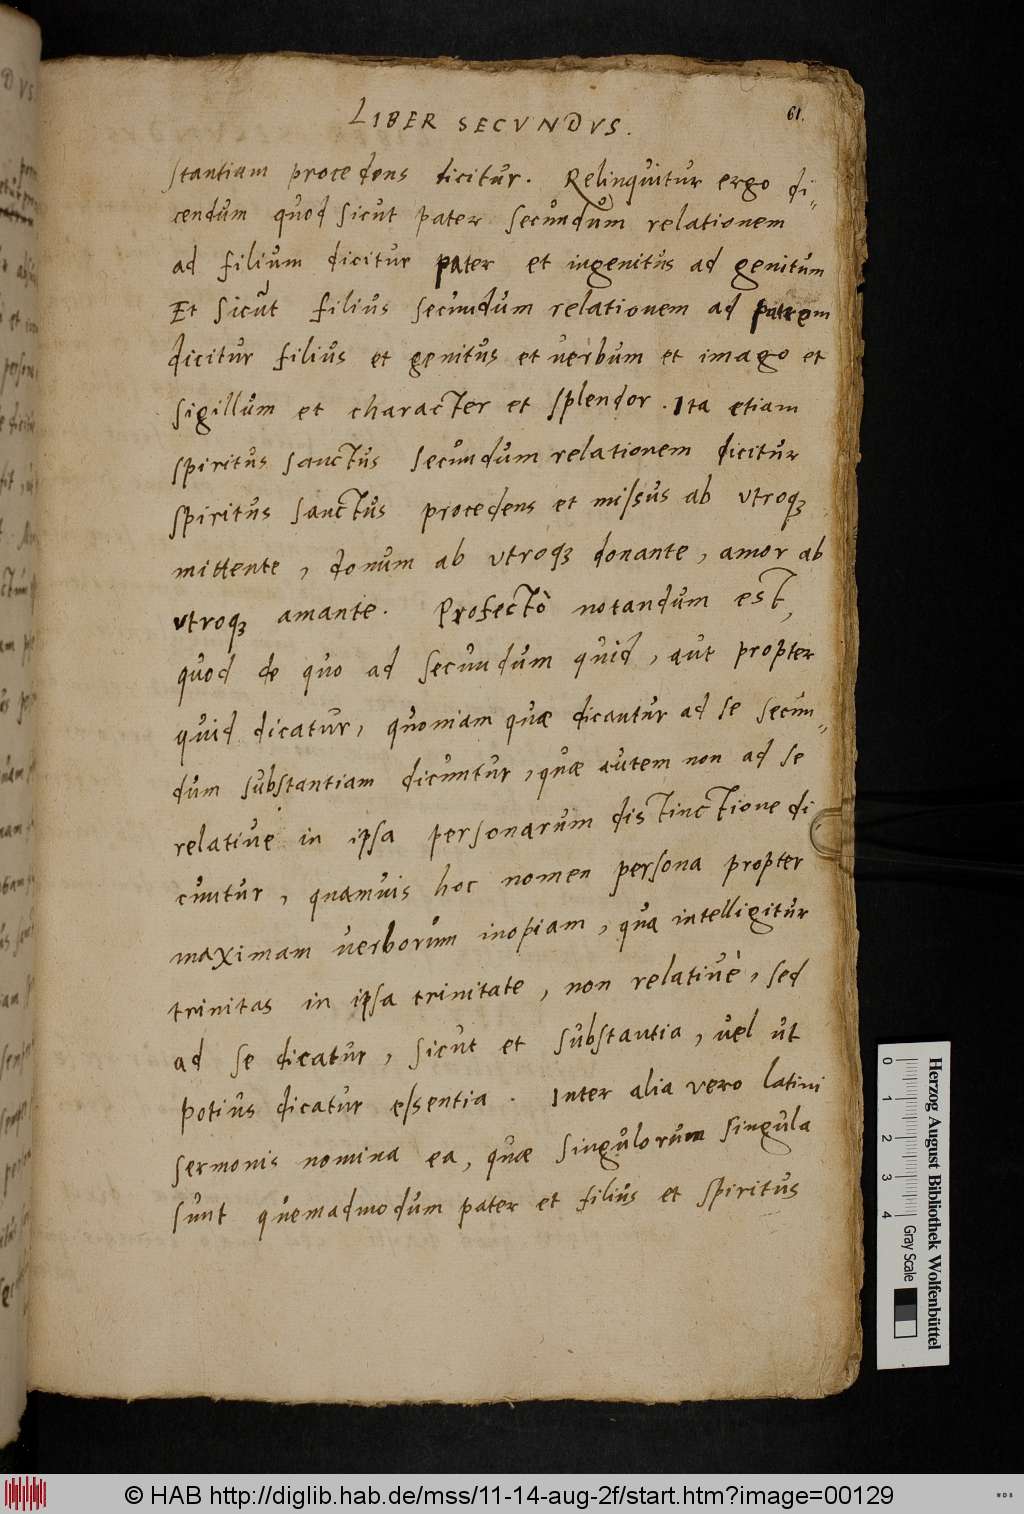 LIBER SECVNDVS.
61.
stantiam procedens dicitur. Relinquitur ergo di„
cendum quod sicut pater secundum relationem
ad filium dicitur pater et ingenitus ad genitum
Et sicut filius secundum relationem ad patrem
dicitur filius et genitus et verbum et imago et
sigillum et character et splendor. Ita etiam
spiritus sanctus secundum relationem dicitur
spiritus sanctus procedens et missus ab vtroqꝫ
mittente, donum ab vtroqꝫ donante, amor ab
vtroqꝫ amante. Profectò notandum est,
quod de quo ad secundum quid, aut propter
quid dicatur, quoniam quæ dicantur ad se secun„
dum substantiam dicuntur, quæ autem non ad se
relatiue in ipsa personarum distinctione di
cuntur, quamuis hoc nomen persona propter
maximam verborum inopiam, qua intelligitur
trinitas in ipsa trinitate, non relatiuè, sed
ad se dicatur, sicut et substantia, vel ut
potius dicatur essentia. Inter alia vero latini
sermonis nomina ea, quæ singulorum singula
sunt quemadmodum pater et filius et spiritus
Herzog August Bibliothek Wolfenbüttel
0 1 2 3 4
Gray Scale
© HAB http://diglib.hab.de/mss/11-14-aug-2f/start.htm?image=00129